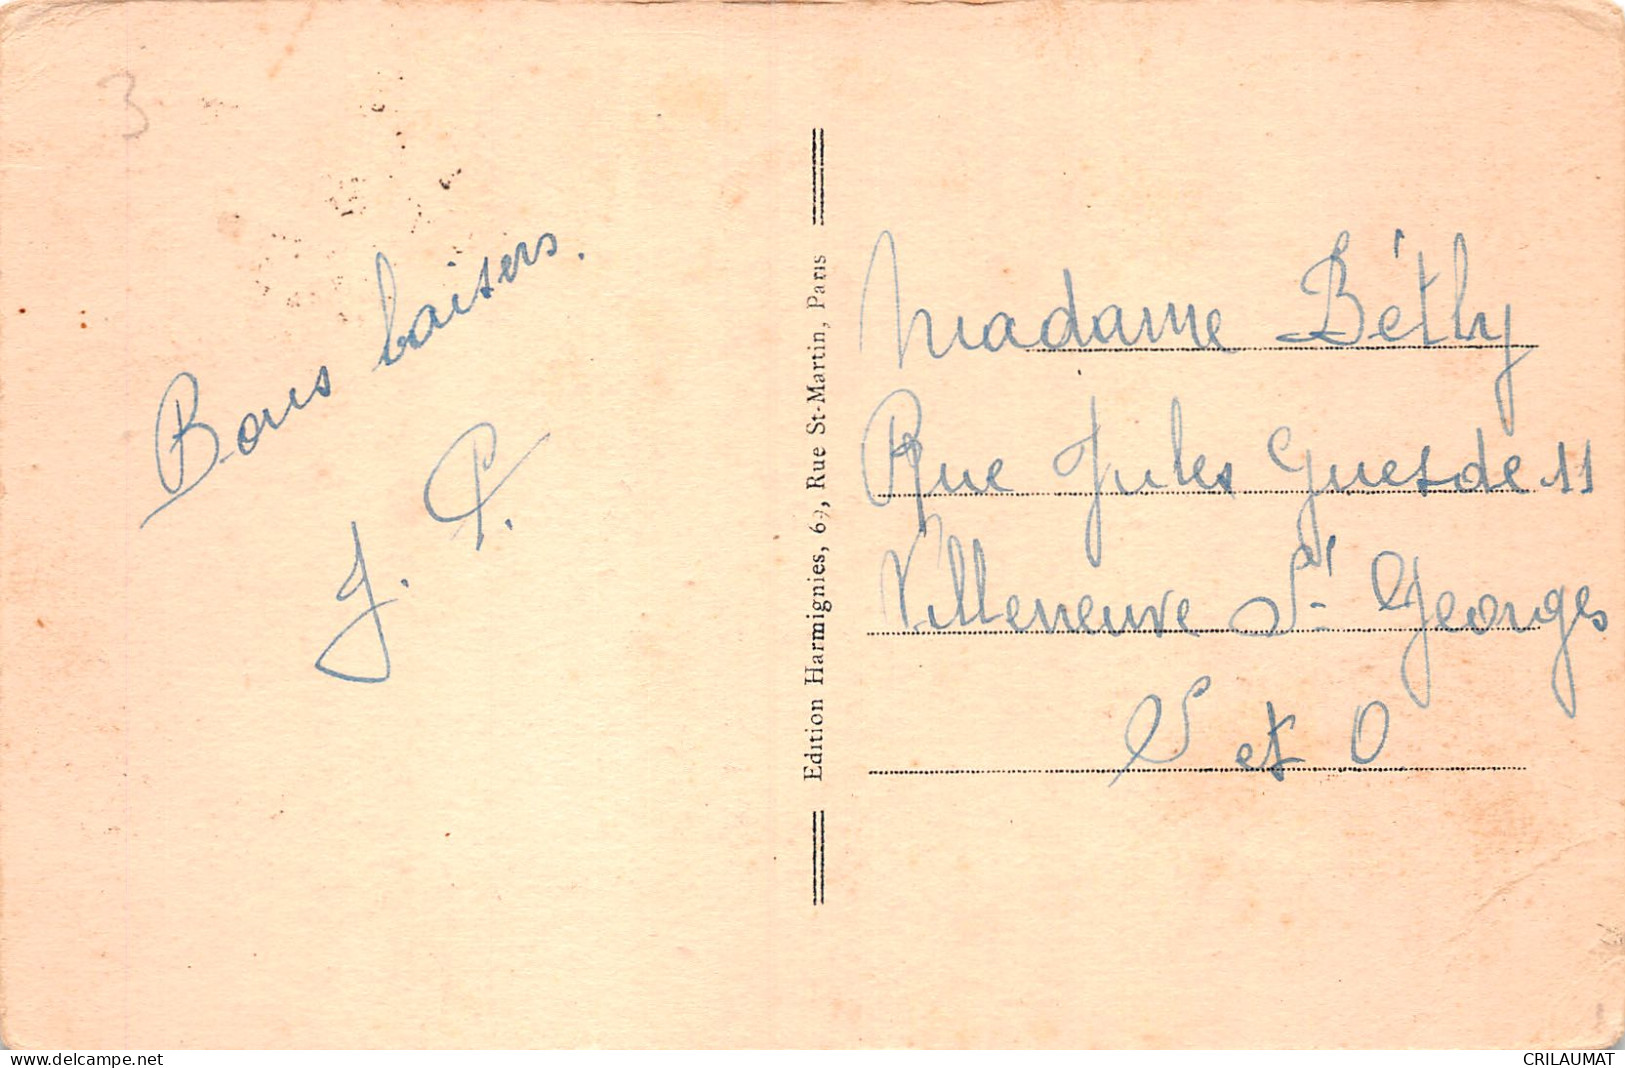 3
Bons baisers.
J. P.
Edition Harmignies, 69, Rue St-Martin, Paris
Madame Béthy
Rue Jules Guesde 11
Villeneuve St Georges
S et O
www.delcampe.net
CRILAUMAT